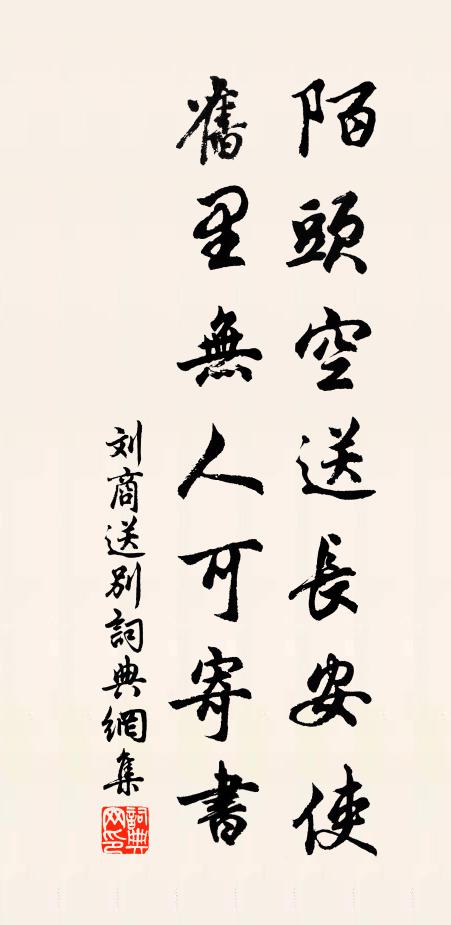 陌頭空送長安使
舊里無人可寄書
刘商送别詞典網集
詞典網印